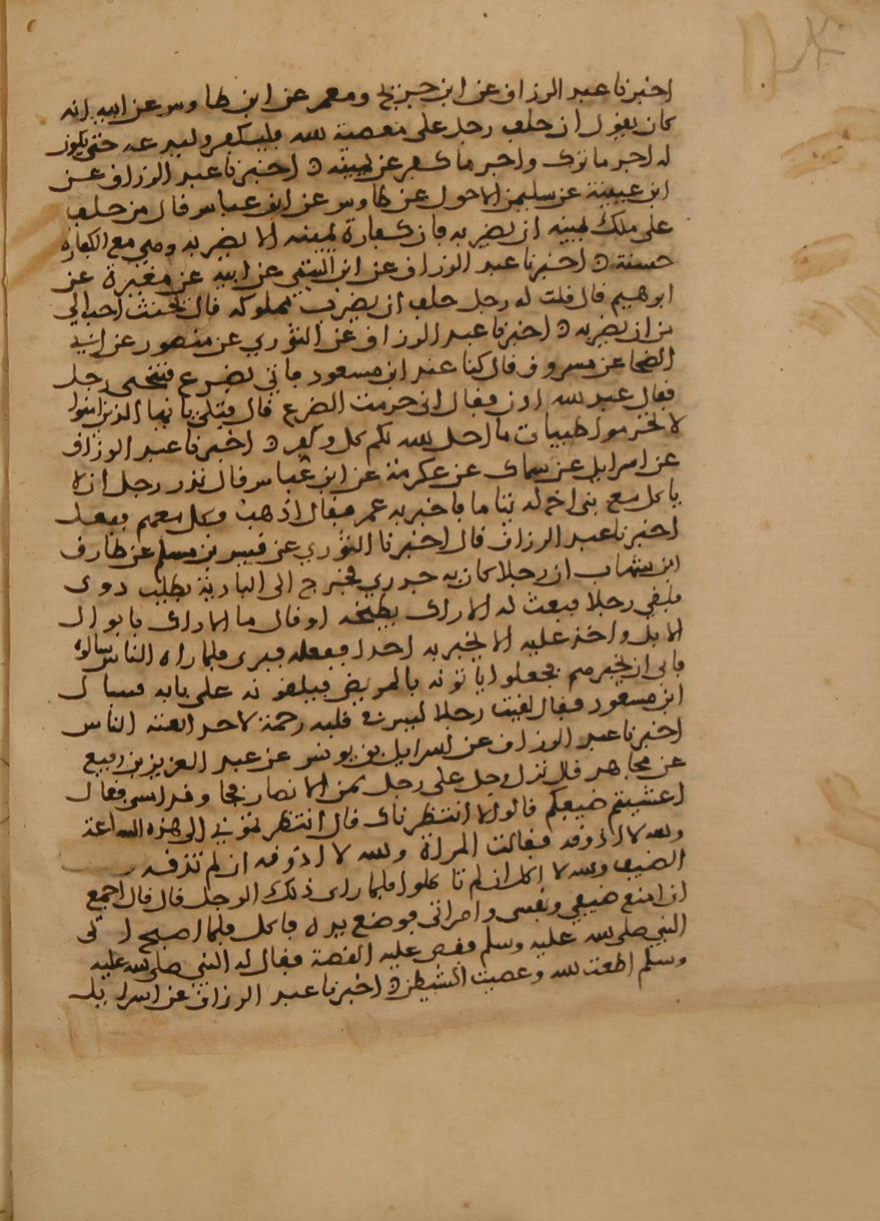 اخبرنا عبد الرزاق عن ابن جريج ومعمر عن ابن طاوس عن ابيه انه
كان يقول ان حلف رجل على معصية لله فليكفر وليدعه حتى يكون
له اجر ما ترك واجر ما كفر عن يمينه ه اخبرنا عبد الرزاق عن
ابن عيينة عن سليمن الاحول عن طاوس عن ابن عباس قال من حلف
على ملك يمينه ان يضربه فان كفارة يمينه الا يضربه وهي مع الكفارة
حسنة ه اخبرنا عبد الرزاق عن ابن التيمي عن ابيه عن مغيرة عن
ابرهيم قال قلت له رجل حلف ان يضرب مملوكه قال يحنث احب الي
من ان يضربه ه اخبرنا عبد الرزاق عن الثوري عن منصور عن ابي
الضحا عن مسروق قال كنا عند ابن مسعود فاتي بضرع فتنحى رجل
فقال عبد الله ادن فقال اني حرمت الضرع قال فتلى يايها الذين امنوا
لا تحرموا طيبات ما احل الله لكم كل وكفر ه اخبرنا عبد الرزاق
عن اسرايل عن سماك عن عكرمة عن ابن عباس قال نذر رجل ان لا
ياكل مع بني اخ له يتاما فاخبر به عمر فقال اذهب وكل معهم ففعل
اخبرنا عبد الرزاق قال اخبرنا الثوري عن قيس بن مسلم عن طارق
ابن شهاب ان رجلا كان به جدري فخرج الى البادية يطلب دوى
فلقي رجلا فبعث له الاراك يطبخه او قال ما الاراك بابوال
الابل واخذ عليه الا يخبر به احدا ففعله فبرى فلما راه الناس سالوه
فابى ان يخبرهم فجعلوا ياتونه بالمريض فيلقونه على بابه فسال
ابن مسعود فقال لقيت رجلا ليس في قلبه رحمة لاحد انعته الناس
اخبرنا عبد الرزاق عن اسرايل بن يونس عن عبد العزيز بن رفيع
عن مجاهد قال نزل رجل على رجل من الانصار فجا وقد امسى فقال
اعشيتم ضيفكم قالوا لا انتظرناك قال انتظرتموني الى هذه الساعة
والله لا اذوقه فقالت المراة والله لا اذوقه ان لم تذقه
الضيف والله لا اكل ان لم تاكلوا فلما راى ذلك الرجل قال قال اجمع
ان امنع ضيفي ونفسي وامراتي فوضع يده فاكل فلما اصبح اتى
النبي صلى الله عليه وسلم فقص عليه القصة فقال له النبي صلى الله عليه
وسلم اطعت الله وعصيت الشيطن ه اخبرنا عبد الرزاق عن اسرايل